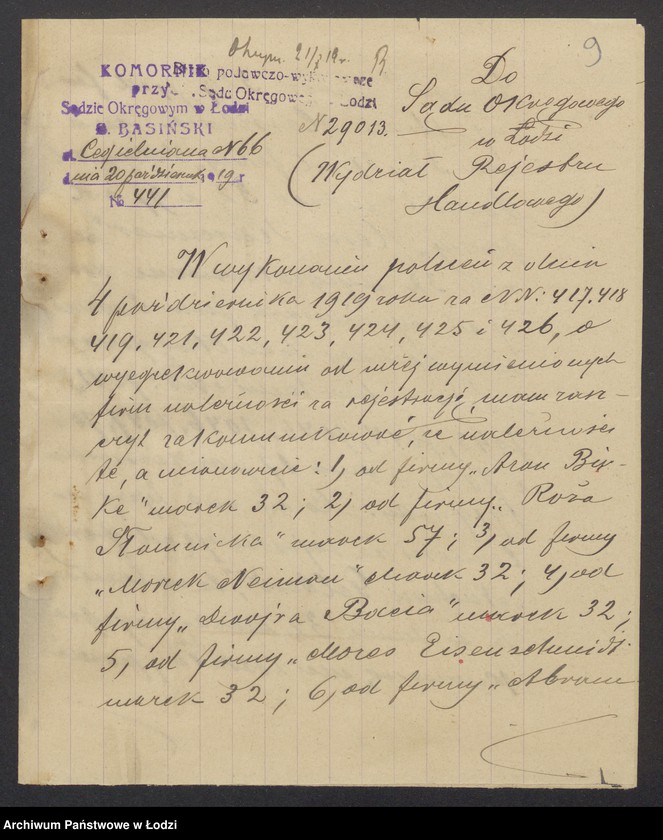 9
Otrzym. 21/X 19 r.
KOMORNIK
przy
Sądzie Okręgowym w Łodzi
S. BASIŃSKI
ul. Cegielniana N 66
dnia 20 październik 1919 r
№ 441
Biuro podawczo-wykonawcze
Sądu Okręgowego w Łodzi
N 29013.
Do
Sądu Okręgowego
w Łodzi
(Wydział Rejestru
Handlowego)
W wykonaniu poleceń z dnia
4 października 1919 roku za NN: 417, 418
419, 421, 422, 423, 424, 425 i 426, o
wyegzekwowaniu od niżej wymienionych
firm należności za rejestrację, mam zasz-
czyt zakomunikować, że należności
te, a mianowicie: 1, od firmy „Aron Bir-
ke" marek 32; 2, od firmy „Róża
Słomnicka" marek 57; 3, od firmy
„Morek Neiman" marek 32; 4, od
firmy „Dwojra Bacia" marek 32;
5, od firmy „Mores Eisenschmidt
marek 32; 6, od firmy „Abram
Archiwum Państwowe w Łodzi